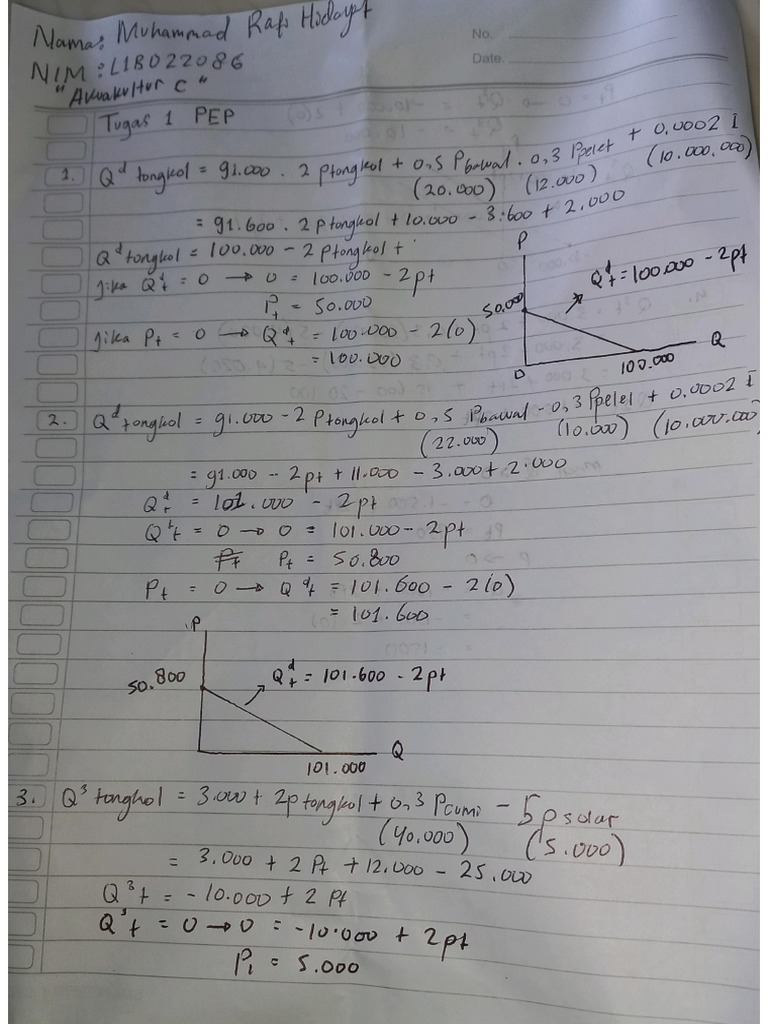 Nama: Muhammad Rafi Hidayat
No.
NIM: L1B022086
Date.
"Akuakultur C"
Tugas 1 PEP
1. Qᵈ tongkol = 91.000 . 2 Ptongkol + 0,5 Pbawal . 0,3 Ppelet + 0.0002 I
(20.000) (12.000) (10.000.000)
= 91.600 . 2 Ptongkol + 10.000 - 3.600 + 2.000
Qᵈ tongkol = 100.000 - 2 Ptongkol +
jika Qᵈt = 0 → 0 = 100.000 - 2pt
Pt = 50.000
jika Pt = 0 → Qᵈt = 100.000 - 2(0)
= 100.000
P
Qᵈt = 100.000 - 2pt
50.000
0 100.000 Q
2. Qᵈ tongkol = 91.000 - 2 Ptongkol + 0,5 Pbawal - 0,3 Ppelet + 0.0002 I
(22.000) (10.000) (10.000.000)
= 91.000 - 2pt + 11.000 - 3.000 + 2.000
Qᵈt = 101.000 - 2pt
Qᵈt = 0 → 0 = 101.000 - 2pt
Pt Pt = 50.800
Pt = 0 → Qᵈt = 101.600 - 2(0)
= 101.600
P
50.800
Qᵈt = 101.600 - 2pt
Q
101.000
3. Q³ tongkol = 3.000 + 2p tongkol + 0,3 Pcumi - 5p solar
(40.000) (5.000)
= 3.000 + 2 Pt + 12.000 - 25.000
Q³t = -10.000 + 2 Pt
Q³t = 0 → 0 = -10.000 + 2pt
P₁ = 5.000